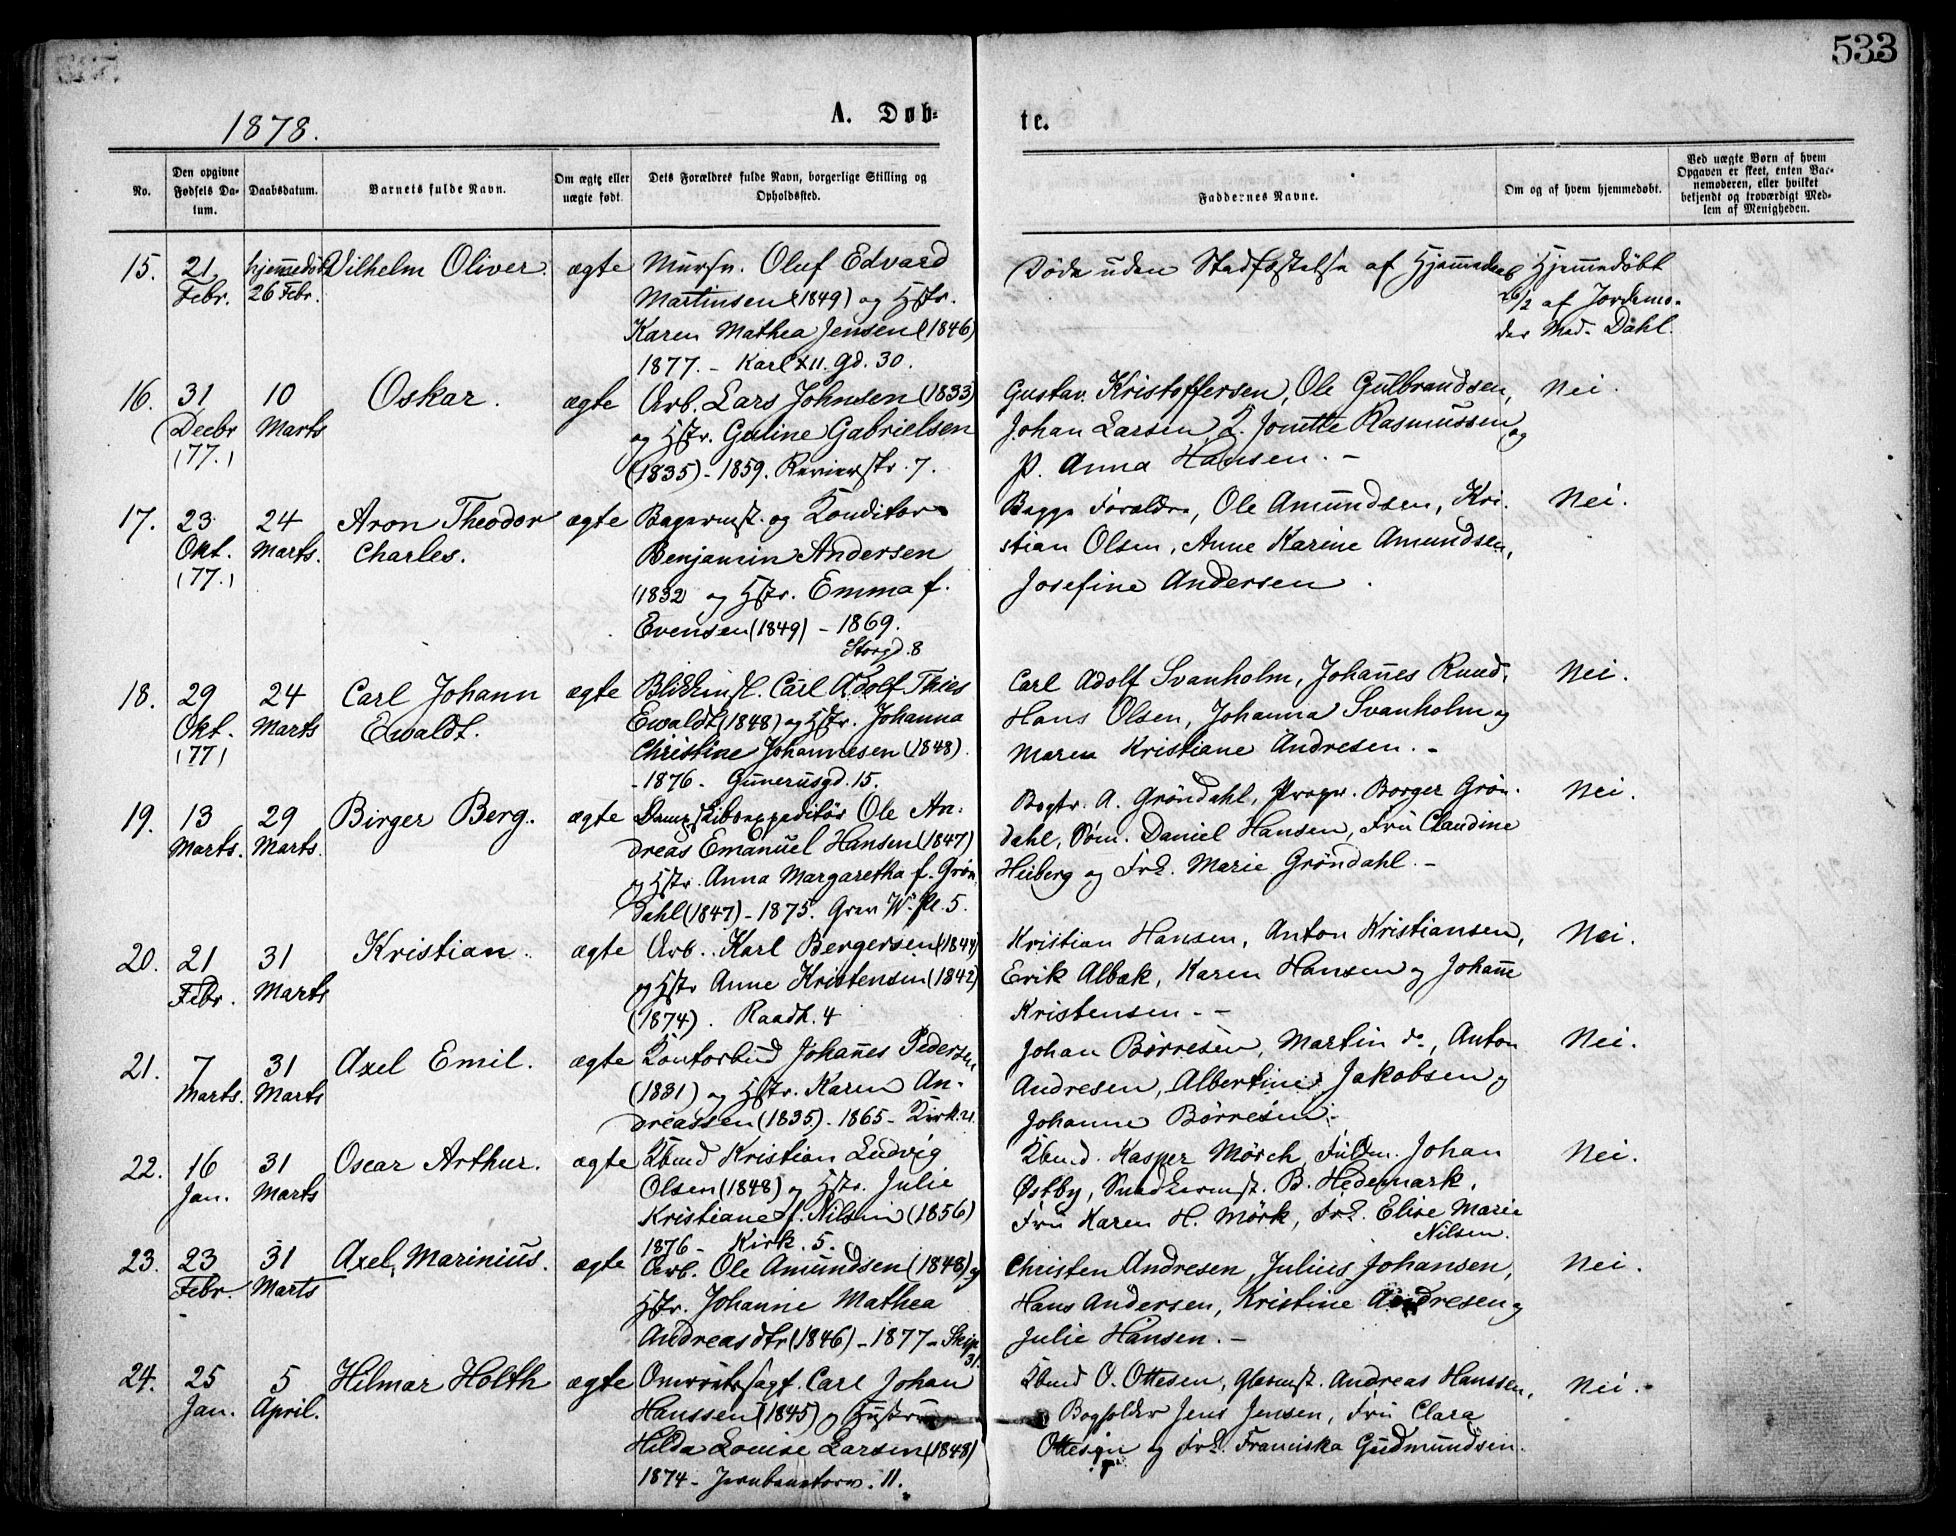 533
1878.
A. Døb-
te.
No.
Den opgivne Fødsels Da-tum.
Daabsdatum.
Barnets fulde Navn.
Om ægte eller uægte født.
Dets Forældres fulde Navn, borgerlige Stilling og Opholdssted.
Faddernes Navne.
Om og af hvem hjemmedøbt.
Ved uægte Børn af hvem Opgaven er skeet, enten Bar-nemoderen, eller hvilket bekjendt og troværdigt Med-lem af Menigheden.
15. 21 Febr. hjemmedøbt 26 Febr. Vilhelm Oliver. ægte
Mursv. Oluf Edvard
Martinsen (1849) og Hstr.
Karen Mathea Jensen (1846)
1877. - Karl XII. gd. 30.
Døde uden Stadfæstelse af Hjemmedaab
Hjemmedøbt
26/2 af Jordemo-
der Mad. Dahl.
16. 31 Decbr (77.) 10 Marts Oskar. ægte
Arb. Lars Johnsen (1833)
og Hstr. Guline Gabrielsen
(1835) - 1859. Revierstr. 7.
Gustav Kristoffersen, Ole Gulbrandsen,
Johan Larsen, Jonette Rasmussen og
P. Anna Hansen. -
Nei.
17. 23 Okt. (77.) 24 Marts. Aron Theodor Charles. ægte
Bagermst. og Konditor
Benjamin Andersen
(1832 og Hstr. Emma f.
Evensen (1849) - 1869.
Storgd. 8
Begge Forældre, Ole Amundsen, Kri-
stian Olsen, Anne Karine Amundsen,
Josefine Andersen.
Nei.
18. 29 Okt. (77) 24 Marts Carl Johann Ewaldt. ægte
Blikkensl. Carl Adolf Thies
Ewaldt (1848) og Hstr. Johanna
Christine Johannesen (1848).
- 1876. Gunerusgd. 15.
Carl Adolf Svanholm, Johannes Ruud,
Hans Olsen, Johanna Svanholm og
Maren Kristiane Andresen. -
Nei.
19. 13 Marts. 29 Marts. Birger Berg. ægte
Dampskibsexpeditør Ole An-
dreas Emanuel Hansen (1847)
og Hstr. Anna Margaretha f. Grøn-
dahl (1847) - 1875. Grev W. Pl. 5.
Bogtr. A. Grøndahl, Borger Grøn-
dahl, Søm. Daniel Hansen, Fru Claudine
Heiberg og Frk. Marie Grøndahl. -
Nei.
20. 21 Febr. 31 Marts Kristian. ægte
Arb. Karl Bergersen (1844)
og Hstr Anne Kristensen (1842)
(1874). Raadh. 4
Kristian Hansen, Anton Kristiansen,
Erik Albæk, Karen Hansen og Johanne
Kristensen. -
Nei.
21. 7 Marts. 31 Marts Axel Emil. ægte
Kontorbud Johannes Pedersen
(1831) og Hstr. Karen An-
dreassen (1835). 1865 - Kirk. 21.
Johan Børresen, Martin do, Anton
Andresen, Albertine Jakobsen og
Johanne Børresen. -
Nei.
22. 16 Jan. 31 Marts Oscar Arthur. ægte
Kbmd Kristian Ludvig
Olsen (1848) og Hstr. Julie
Kristiane f. Nilsen (1856)
1876 - Kirk. 5.
Kbmd. Kasper Mörch, Fuldm. Johan
Østby, Snedkermst. B. Hedemark,
Fru Karen H. Mörk, Frk. Elise Marie
Nilsen.
Nei.
23. 23 Febr. 31 Marts Axel Marinius. ægte
Arb. Ole Amundsen (1848) og
Hstr. Johanne Mathea
Andreasdtr (1846) - 1877 - Skip. 31.
Christen Andresen, Julius Johansen,
Hans Andersen, Kristine Andresen og
Julie Hansen. -
Nei.
24. 25 Jan. 5 April. Hilmar Holth ægte
Overretssagf. Carl Johan
Hanssen (1845) og Hustru
Hilda Louise Larsen (1848)
1874 - Jernbanetorv. 11.
Kbmd O. Ottesen, Glasmst. Andreas Hanssen,
Bogholder Jens Jensen, Fru Clara
Ottesen og Frk. Franciska Gudmundsen.
Nei.